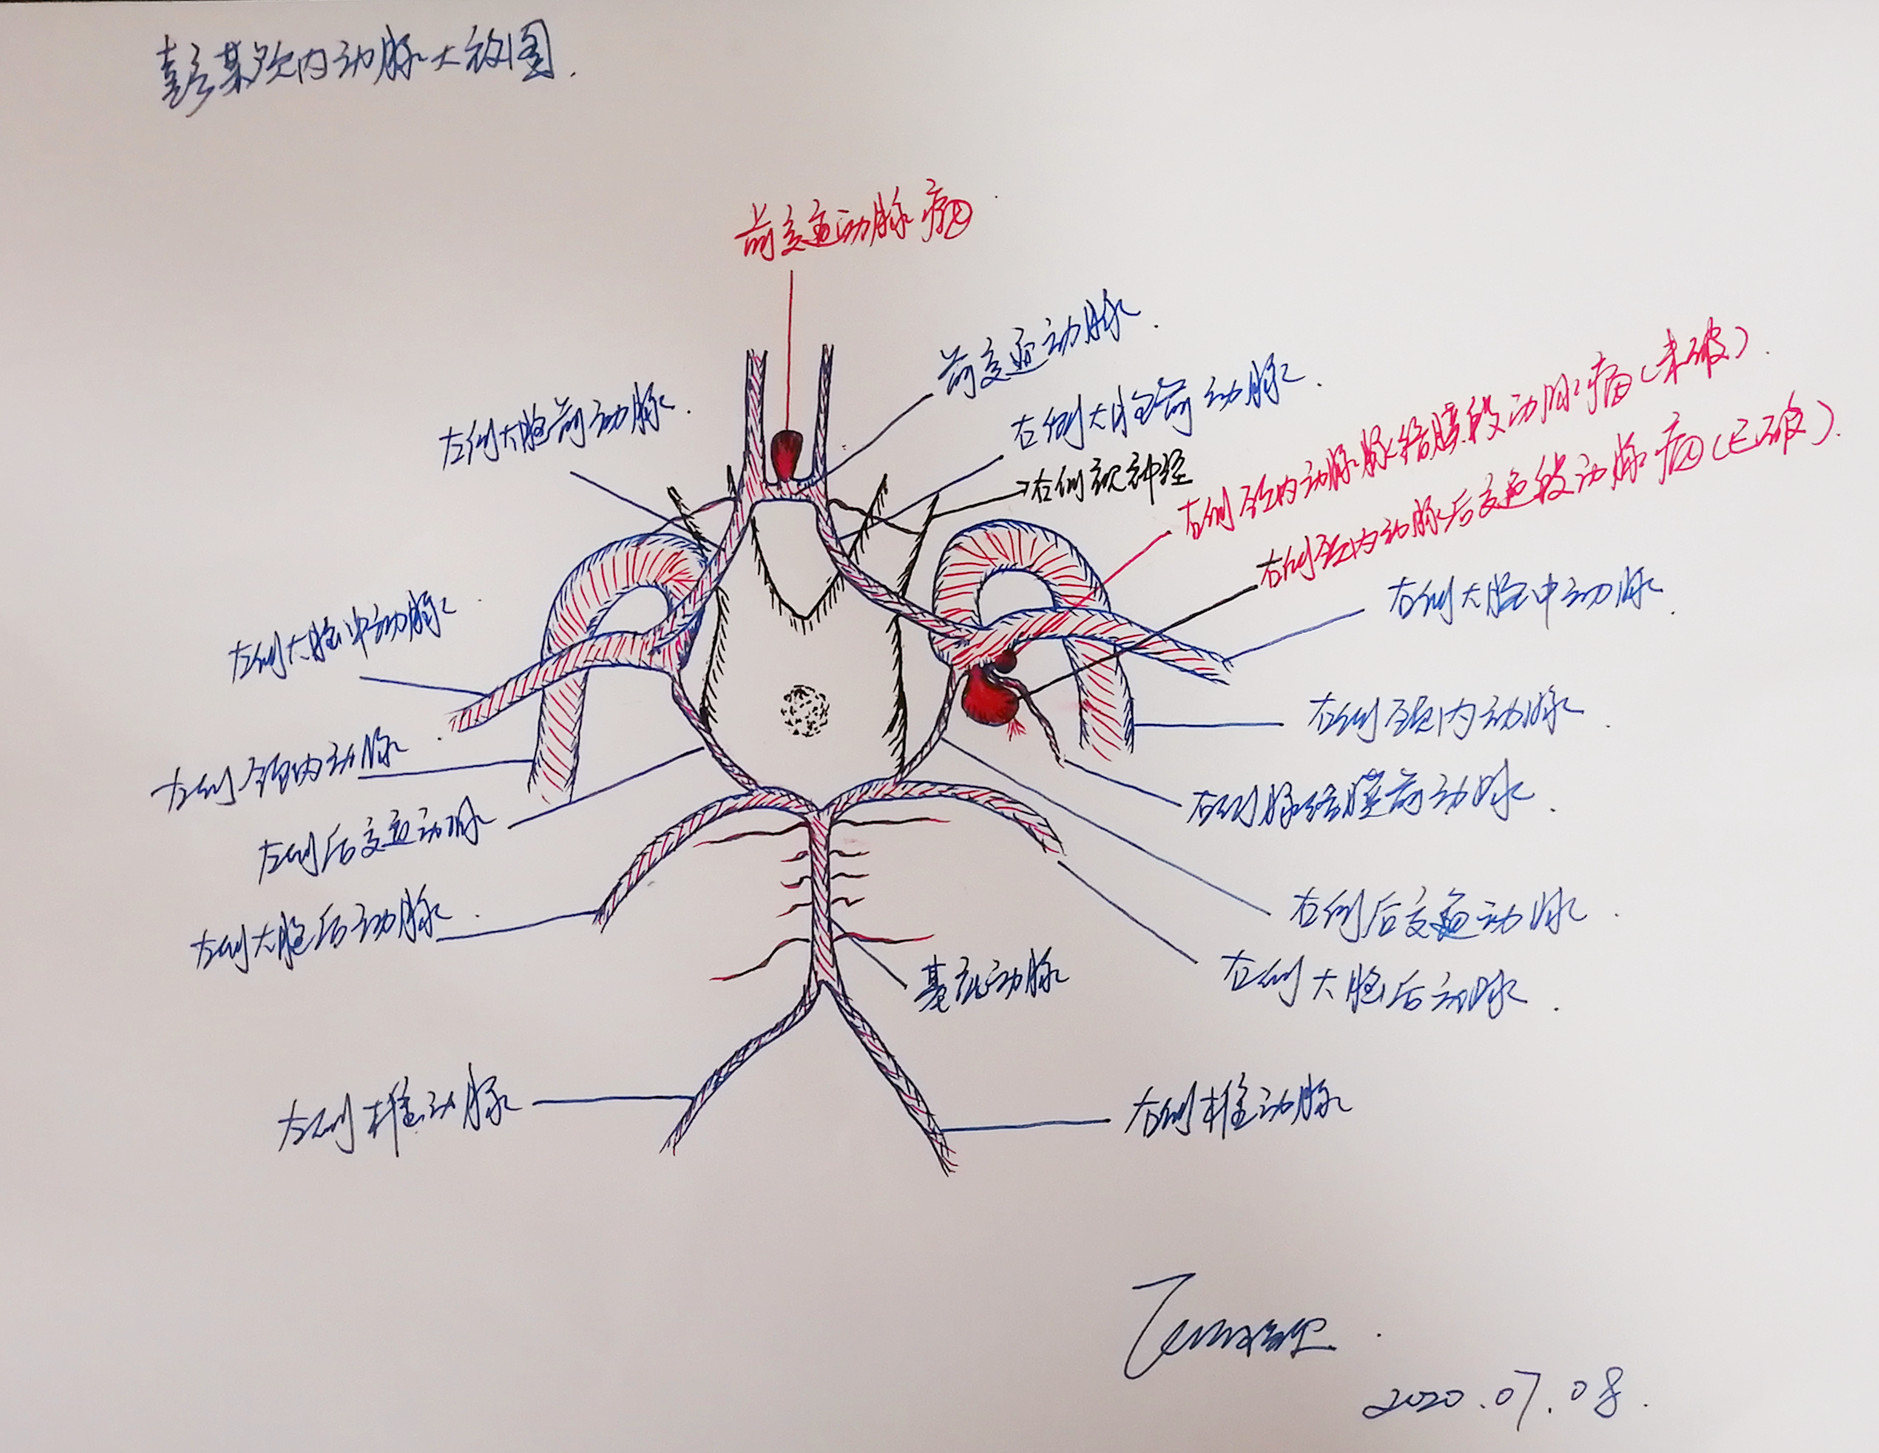 彭某颅内动脉大放图.
前交通动脉瘤
前交通动脉.
左侧大脑前动脉.
右侧大脑前动脉.
右侧视神经
右侧颈内动脉脉络膜段动脉瘤(未破).
右侧颈内动脉后交通段动脉瘤(已破).
右侧大脑中动脉.
左侧大脑中动脉.
右侧颈内动脉.
左侧颈内动脉.
右侧脉络膜前动脉.
左侧后交通动脉
右侧后交通动脉.
左侧大脑后动脉.
右侧大脑后动脉.
基底动脉
左侧椎动脉
右侧椎动脉
2020.07.08.